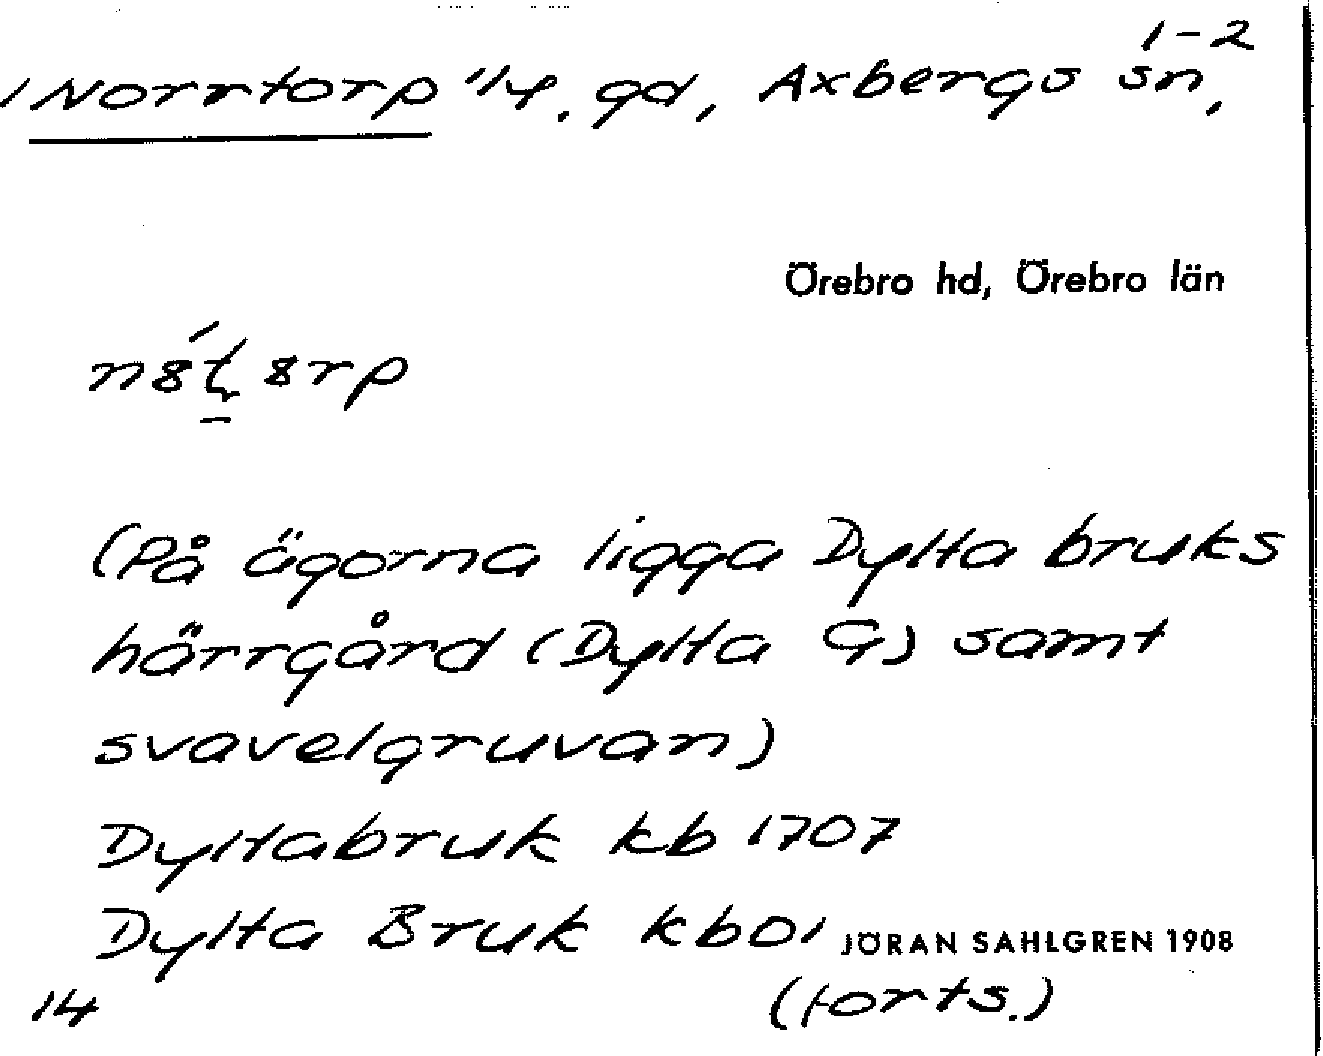 1-2
Norrtorp 1/4. gd, Axbergs sn,
Örebro hd, Örebro län
(På ägorna ligga Dylta bruks
härrgård (Dylta G) samt
svavelgruvan)
Dyltabruk kb 1707
Dylta Bruk kb01
JÖRAN SAHLGREN 1908
14 (forts.)